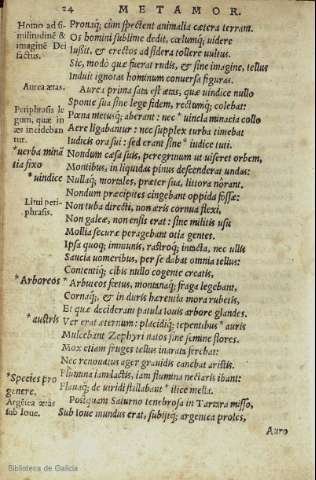 24 METAMOR.
Homo ad si-
militudinē &
imaginē Dei
factus.
Aurea ætas.
Periphrasis le
gum, quæ in
æs incidebān
tur.
*uerba minā
tia fixo
*uindice
Litui peri-
phrasis.
*Arboreos
*austris
*Species pro
genere.
Argētea ætas
sub Ioue.
Pronaq́; cùm spectent animalia cætera terram:
Os homini sublime dedit, cœlumq́; uidere
Iussit, & erectos ad sidera tollere uultus.
Sic, modò quæ fuerat rudis, & sine imagine, tellus
Induit ignotas hominum conuersa figuras.
Aurea prima sata est ætas, quæ uindice nullo
Sponte sua sine lege fidem, rectumq́; colebat:
Pœna metusq́; aberant: nec *uincla minacia collo
Aere ligabantur: nec supplex turba timebat
Iudicis ora sui: sed erant sine *iudice tuti.
Nondum cæsa suis, peregrinum ut uiseret orbem,
Montibus, in liquidas pinus descenderat undas:
Nullaq́; mortales, præter sua, littora nôrant.
Nondum præcipites cingebant oppida fossæ:
Non tuba directi, non æris cornua flexi,
Non galeæ, non ensis erat: sine militis usu
Mollia securæ peragebant otia gentes.
Ipsa quoq́; immunis, rastroq́; intacta, nec ullis
Saucia uomeribus, per se dabat omnia tellus:
Contentiq́; cibis nullo cogente creatis,
*Arbuteos fœtus, montanaq́; fraga legebant,
Cornaq́; & in duris hærentia mora rubetis,
Et quæ deciderant patula Iouis arbore glandes.
Ver erat æternum: placidiq́; tepentibus *auris
Mulcebant Zephyri natos sine semine flores.
Mox etiam fruges tellus inarata ferebat:
Nec renouatus ager grauidis canebat aristis.
Flumina iam lactis, iam flumina nectaris ibant:
Flauaq́; de uiridi stillabant *ilice mella.
Postquam Saturno tenebrosa in Tartara misso,
Sub Ioue mundus erat, subijtq́; argentea proles,
Auro
Biblioteca de Galicia